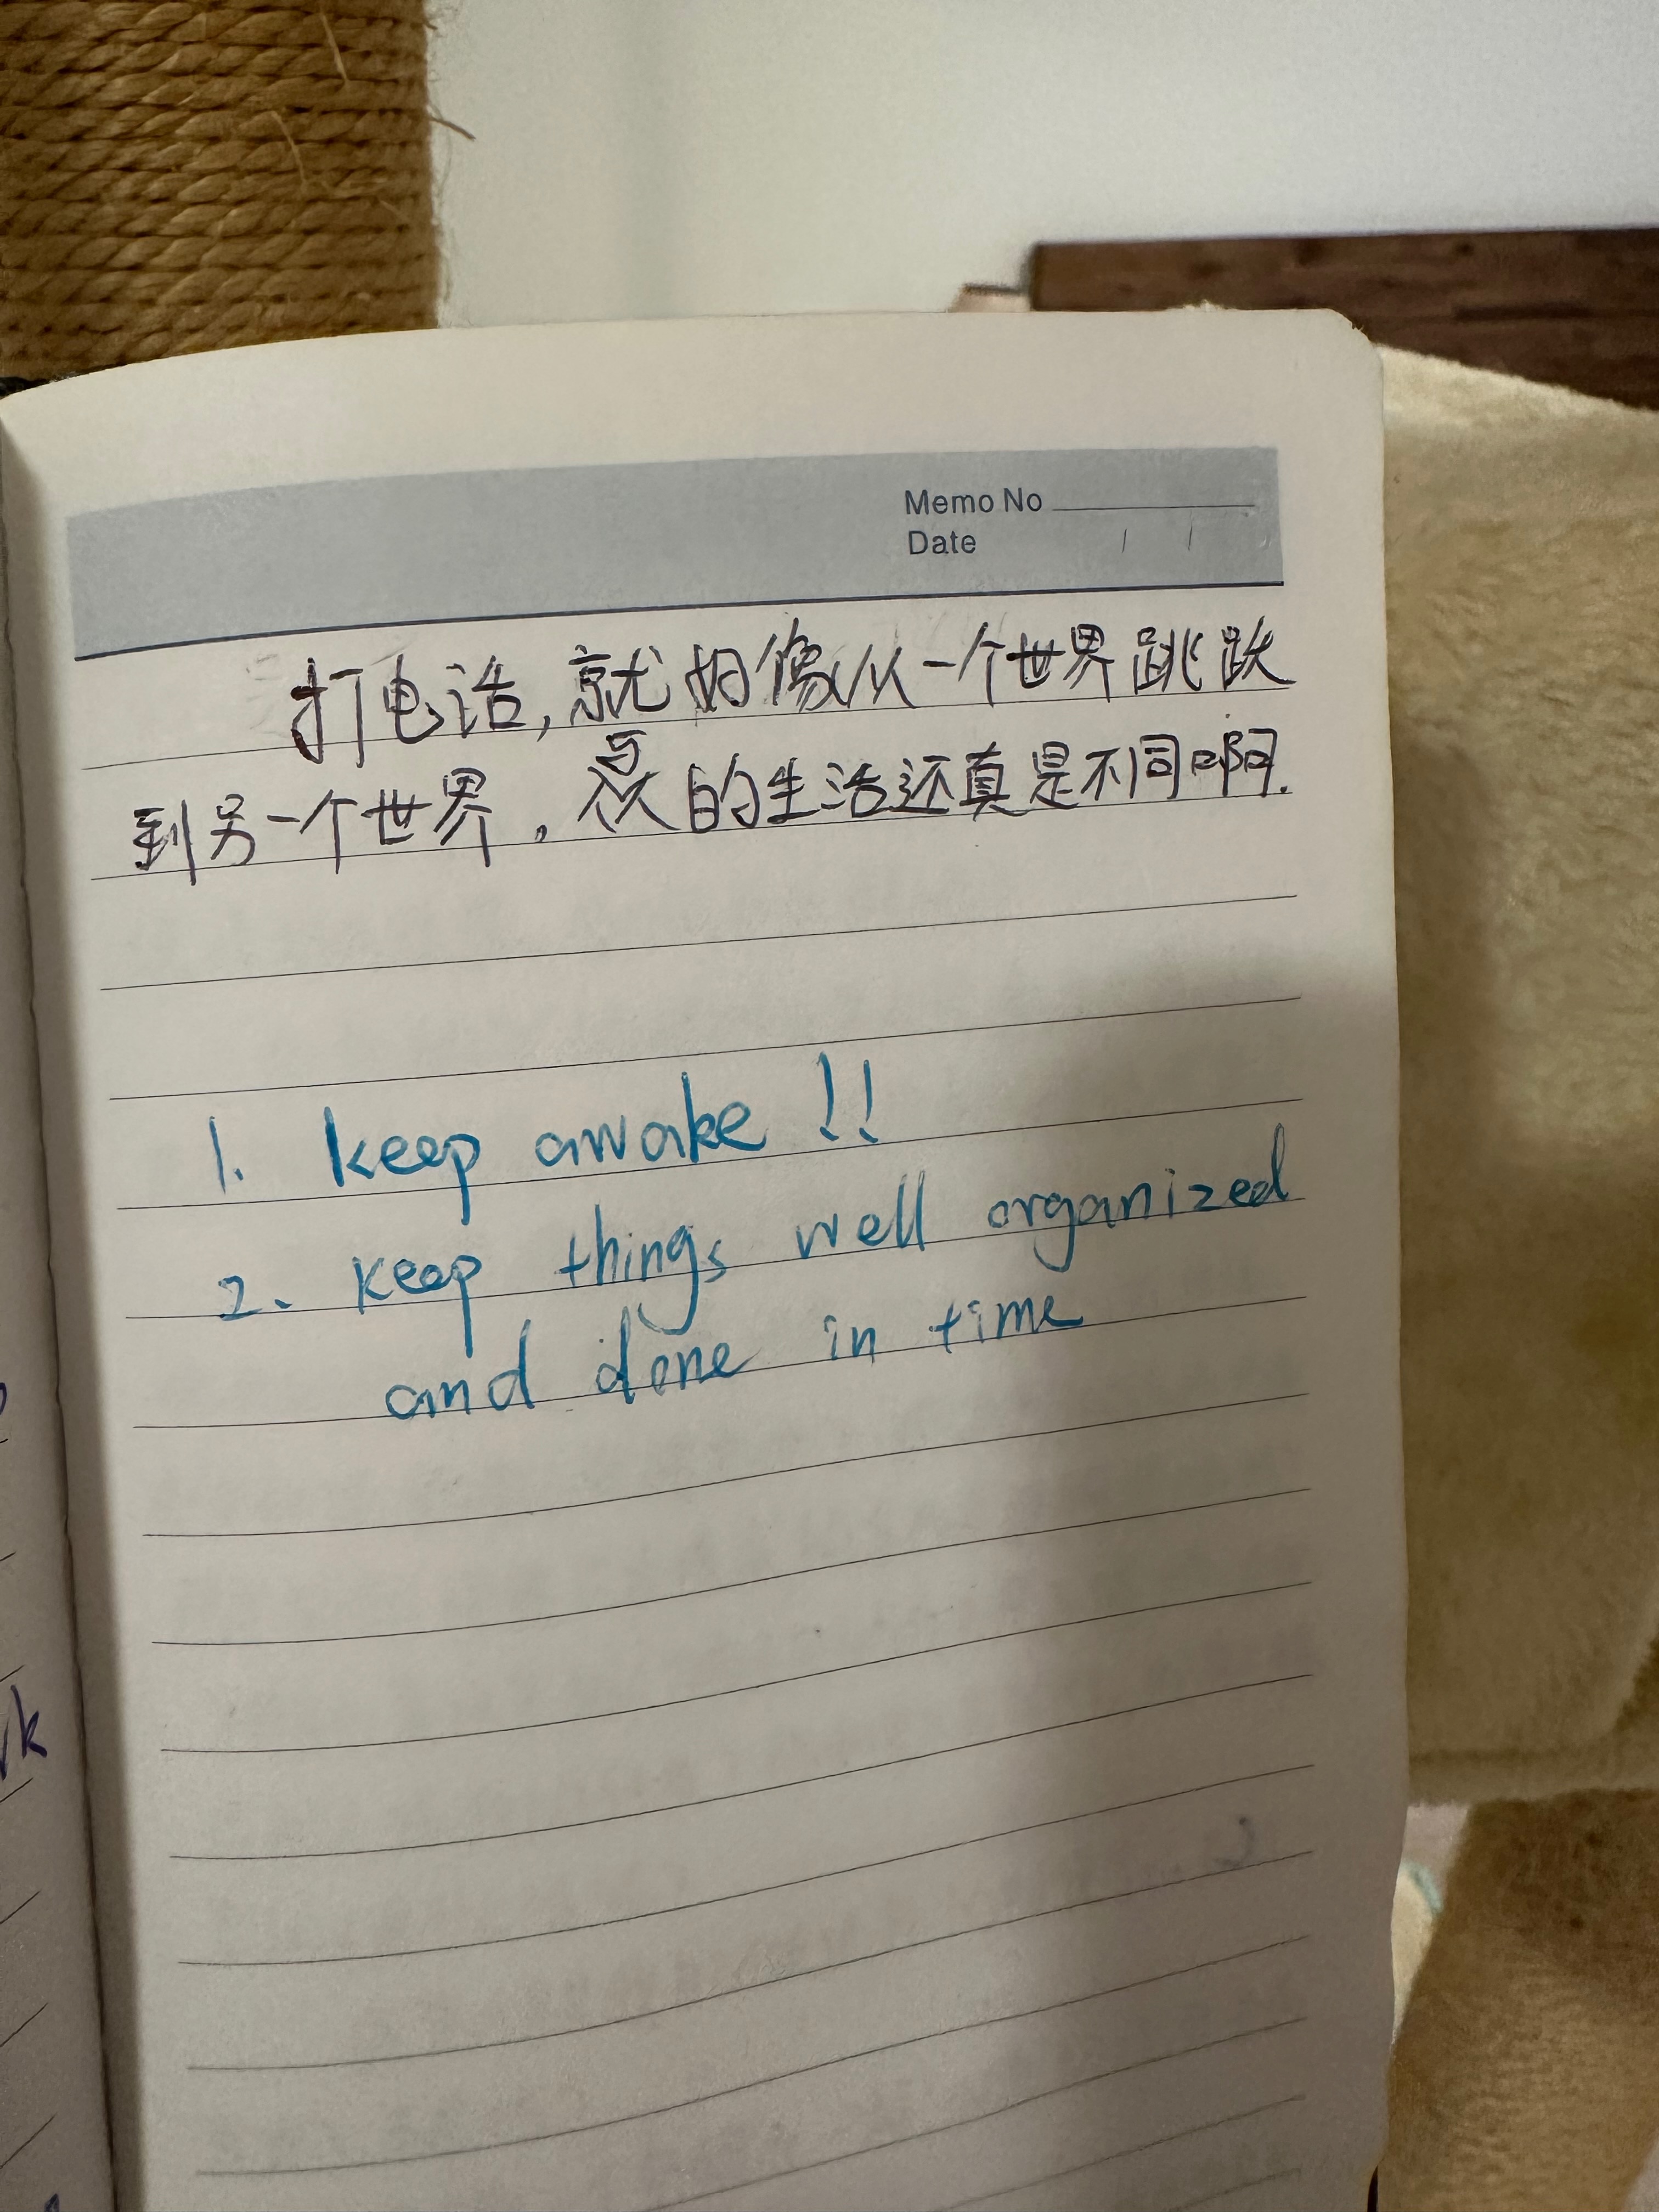 Memo No
Date / /
打电话,就好像从一个世界跳跃
到另一个世界,的生活还真是不同啊.
1. keep awake !!
2. keep things well organized
and done in time